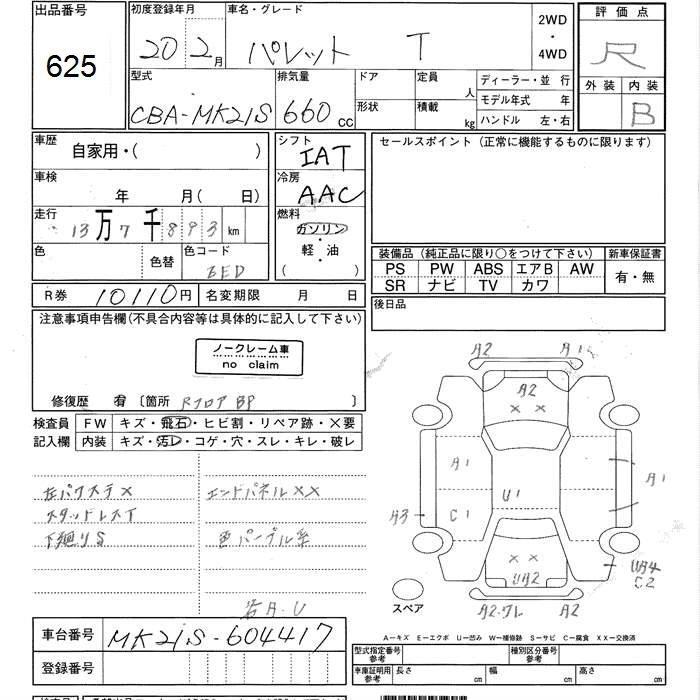 出品番号
625
初度登録年月
20 2月
車名・グレード
パレット T
2WD
・
4WD
評価点
R
外装 内装
B
型式
CBA-MK21S
排気量
660 CC
ドア
形状
定員 人
積載 kg
ディーラー・並 行
モデル年式 年
ハンドル 左・右
車歴
自家用・( )
車検
年 月( 日)
走行
13万7千893 km
色
色替
色コード
シフト
IAT
冷房
AAC
燃料
ガソリン
・
軽・油
( )
セールスポイント(正常に機能するものに限ります)
装備品(純正品に限り○をつけて下さい)
PS PW ABS エアB AW
SR ナビ TV カワ
新車保証書
有・無
R券 10110円 名変期限 月 日
後日品
注意事項申告欄(不具合内容等は具体的に記入して下さい)
ノークレーム車
no claim
修復歴 有 〔箇所 RフロアBP
検査員
記入欄
FW キズ・飛石・ヒビ割・リペア跡・X要
内装 キズ・汚レ・コゲ・穴・スレ・キレ・破レ
左バクステX
スタッドレスT
下廻りS
エンドパネルXX
色パープル系
各A.U
A2 A1
A2
XX
A1
U1
A1
A3
C1
XX
UA2
C2
スペア
A2 A2
A-キズ E-エクボ U-凹み W-補修跡 S-サビ C-腐食 XX-交換済
車台番号 MK21S-604417
登録番号
型式指定番号
参考
種別区分番号
参考
車庫証明用
参考
長さ cm
幅 cm
高さ cm